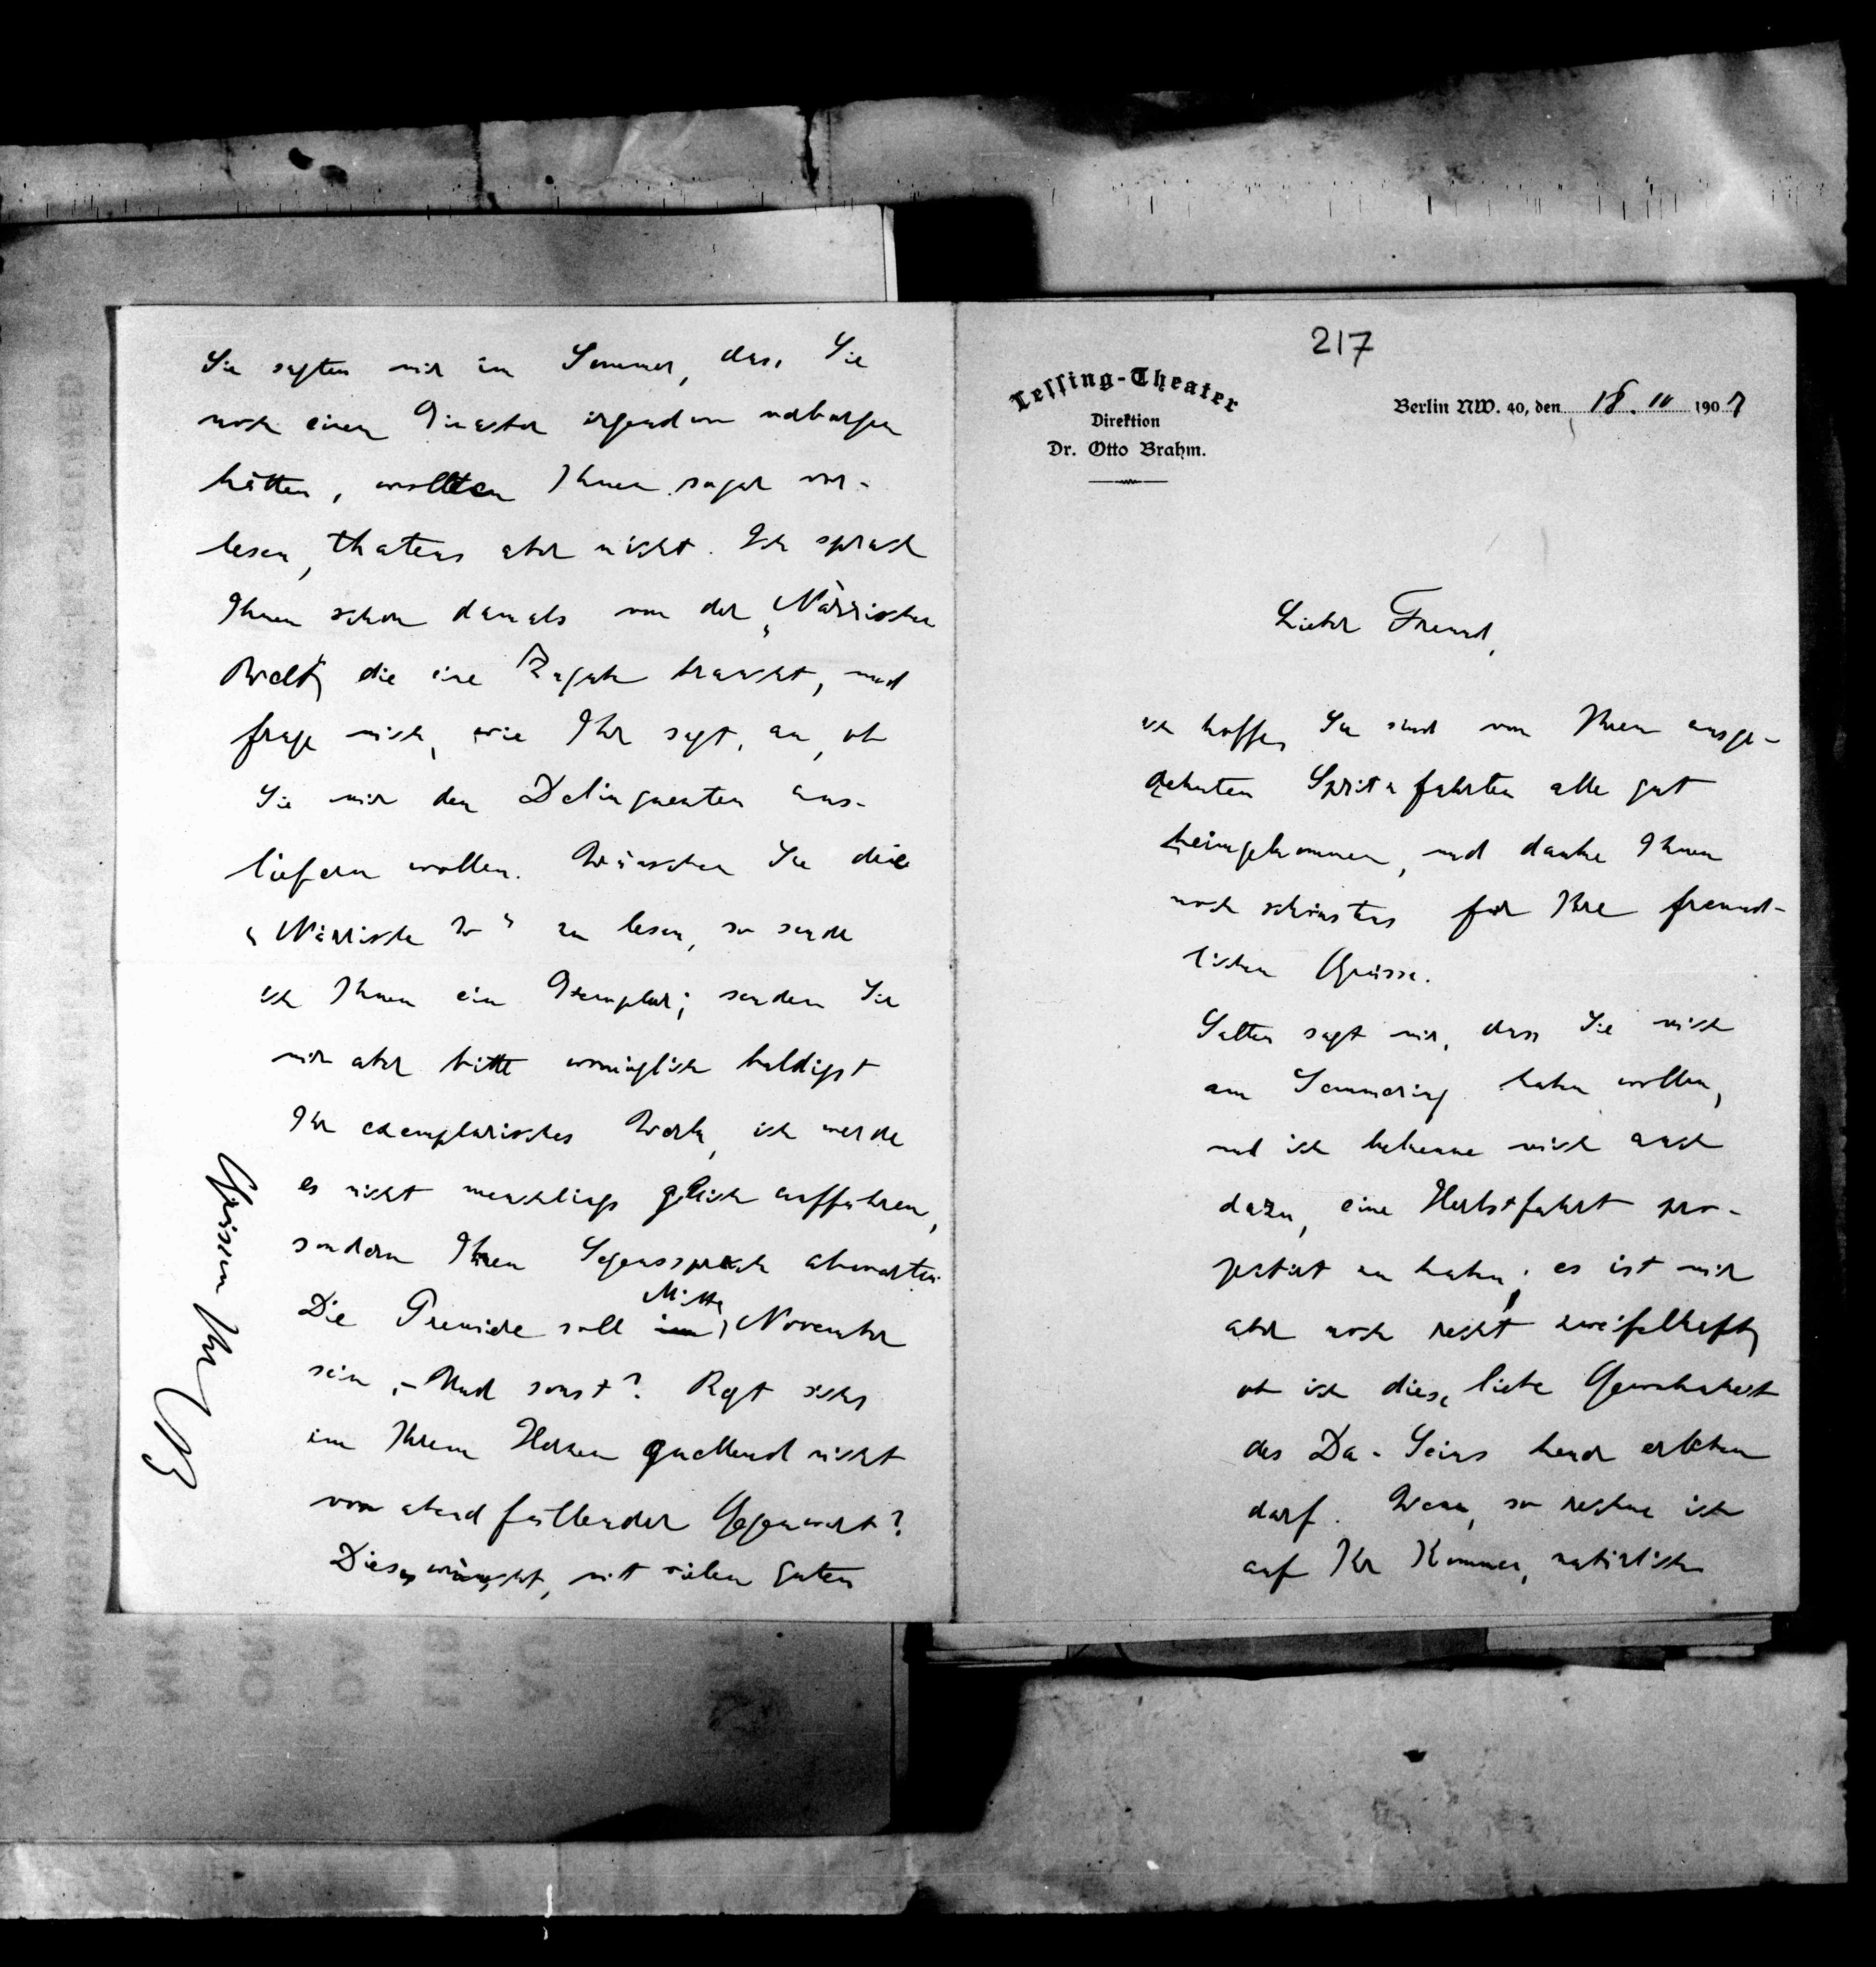 217
Lessing-Theater
Direktion
Dr. Otto Brahm.
Berlin NW. 40, den 18. 10 1907
Lieber Freund,
ich hoffe, Sie sind von Ihren ausge-
dehnten Spritzfahrten alle gut
heimgekommen, und danke Ihnen
noch schönstens für Ihre freund-
lichen Grüsse.
Salten sagt mir, dass Sie mich
am Semmering haben wollen,
und ich bekenne mich auch
dazu, eine Herbstfahrt pro-
jektirt zu haben; es ist mir
aber noch recht zweifelhaft,
ob ich diese liebe Gewohnheit
des Da-Seins heuer erleben
darf. Wenn, so rechne ich
auf Ihr Kommen, natürlich
Sie sagten mir im Sommer, dass Sie
noch einen Einakter irgendwo verborgen
hätten, wollten Ihnen sogar vor-
lesen, thatens aber nicht. Ich sprach
Ihnen schon damals von der „Närrischen
Welt“, die eine Zugabe braucht, und
frage mich, wie Ihr sagt, an, ob
Sie mir den Delinquenten aus-
liefern wollen. Wünschen Sie die
„Närrische W“ zu lesen, so sende
ich Ihnen ein Exemplar; senden Sie
mir aber bitte womöglich baldigst
Ihr exemplarisches Werk, ich werde
es nicht meuchlings gleich aufführen,
sondern Ihren Segensspruch abwarten.
Die Premiere soll im Mitte November
sein. – Und sonst? Regt sichs
im Ihrem Herzen quellend nicht
von abendfüllender Gegenwart?
Dieses wünscht, mit vielen guten
Grüssen Ihr OB